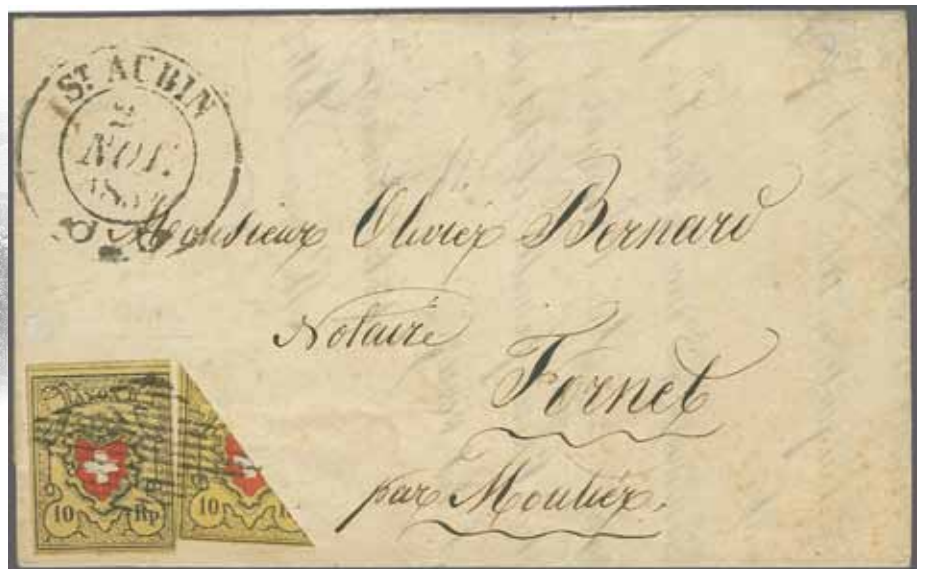 ST AUBIN
2
NOV.
Monsieur Olivier Bernard
Notaire
Fornet
par Moutier.
RAYON II
10 Rp
10